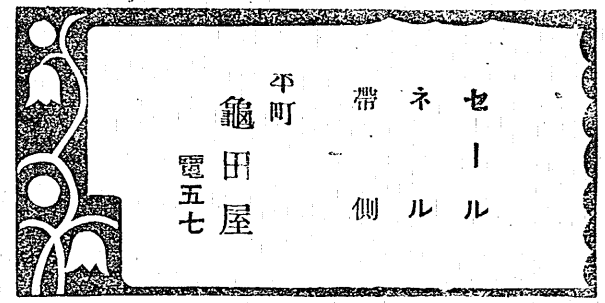 セール
ネル
帯側
平町
龜田屋
電五七